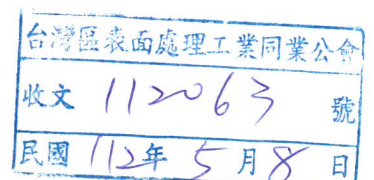 台灣區表面處理工業同業公會
收文 112063 號
民國 112年 5月 8日